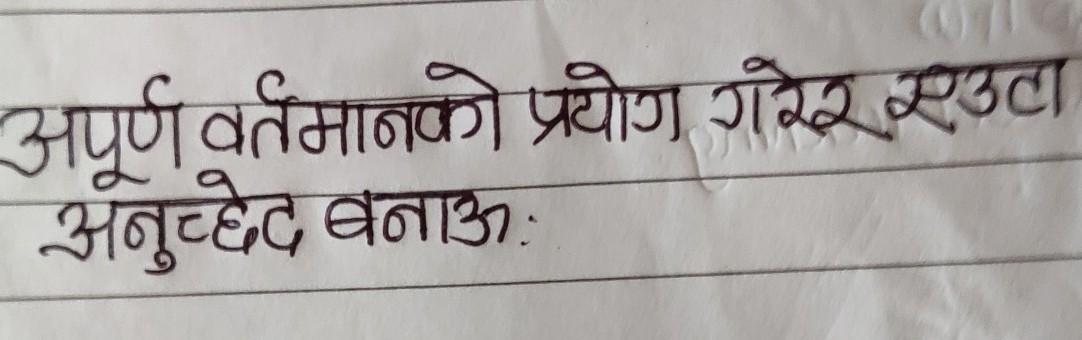 अपूर्ण वर्तमानको प्रयोग गरेर एउटा
अनुच्छेद बनाऊ: